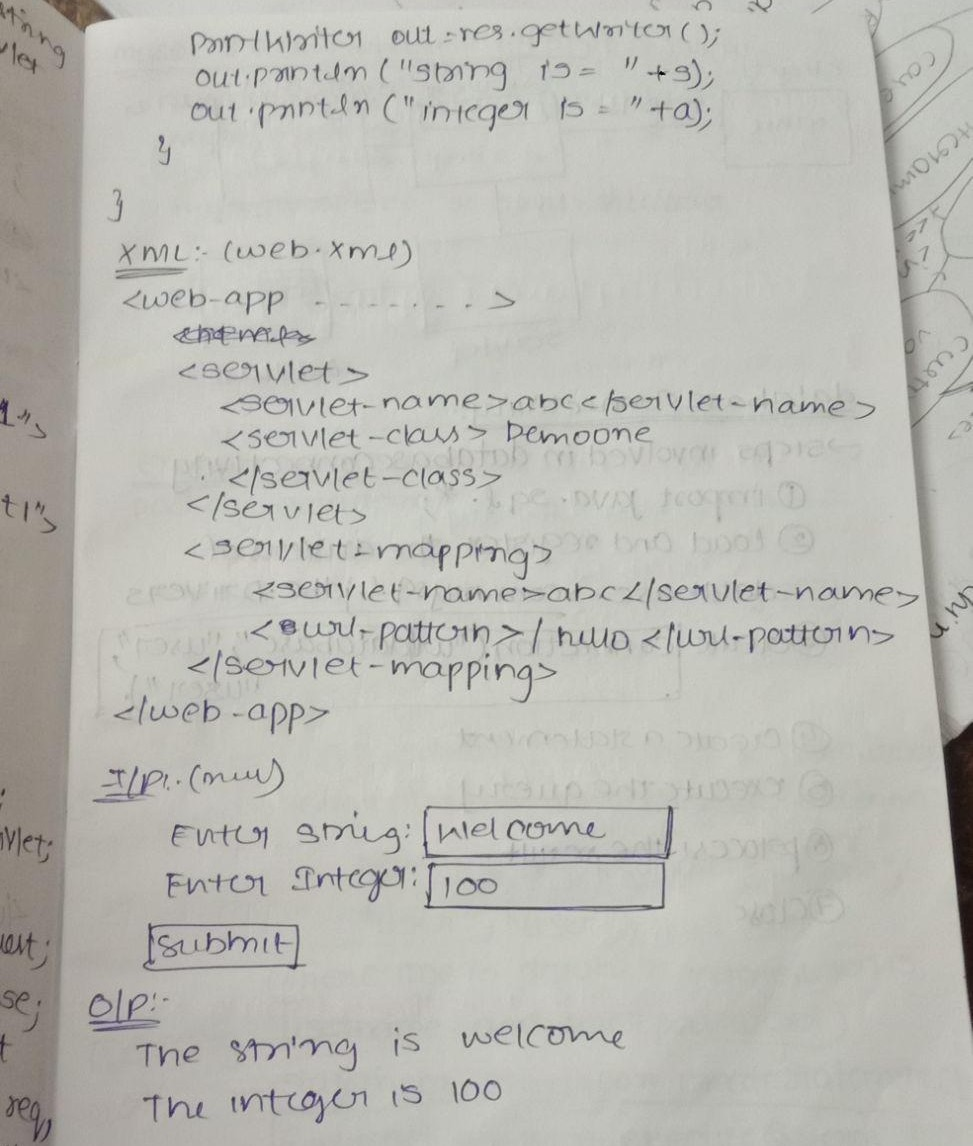 PrintWriter out = res.getWriter();
out.println ("string is = " + s);
out.println ("integer is = " +a);
}
}
XML:- (web.xml)
<web-app - - - - - - - - >
<servlet>
<servlet-name>abc</servlet-name>
<servlet-class> Demoone
</servlet-class>
</servlet>
<servlet-mapping>
<servlet-name>abc</servlet-name>
<url-pattern>/hello</url-pattern>
</servlet-mapping>
</web-app>
I/P:-
Enter string: Welcome
Enter Integer: 100
Submit
O/P:-
The string is welcome
The integer is 100